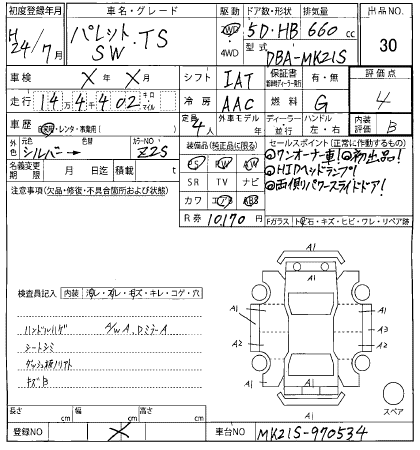 初度登録年月 車名・グレード 駆動 ドア数・形状 排気量 出品NO.
H24/7月 パレット.TS SW 2WD 4WD 5D・HB 660cc 30
型式 DBA-MK21S
車検 X年X月 シフト IAT 保証書 有・無 評価点
走行 14万4千402 キロ マイル 冷房 AAC 燃料 G 4
車歴 自家用・レンタ・事業用( ) 定員 4人 ディーラー車モデル ディーラー 並行 ハンドル 左・右 内装評価 B
外色 元色 シルバー→ 色替 カラーNO. Z2S 装備品(純正品に限る) セールスポイント(正常に作動するもの)
名義変更期限 月 日迄 積載 t PS PW AW ◎ワンオーナー車!◎初出品!
注意事項(欠品・修復・不具合箇所および状態) SR TV ナビ ◎HIDヘッドランプ!
カワ エアB ABS ◎両側パワースライドドア!
R券 10,170円 Fガラス トビ石・キズ・ヒビ・ワレ・リペア跡
A1
検査員記入 内装 汚レ・スレ・キズ・キレ・コゲ・穴
A1 A1
ハンドルハゲ A/WA, DミラーA A1 A3
シートシミ A2 A2
ダッシュ板ノリアト
キズB
A1 スペア
長さ cm 幅 cm 高さ cm A1
登録NO X 車台NO MK21S-970534